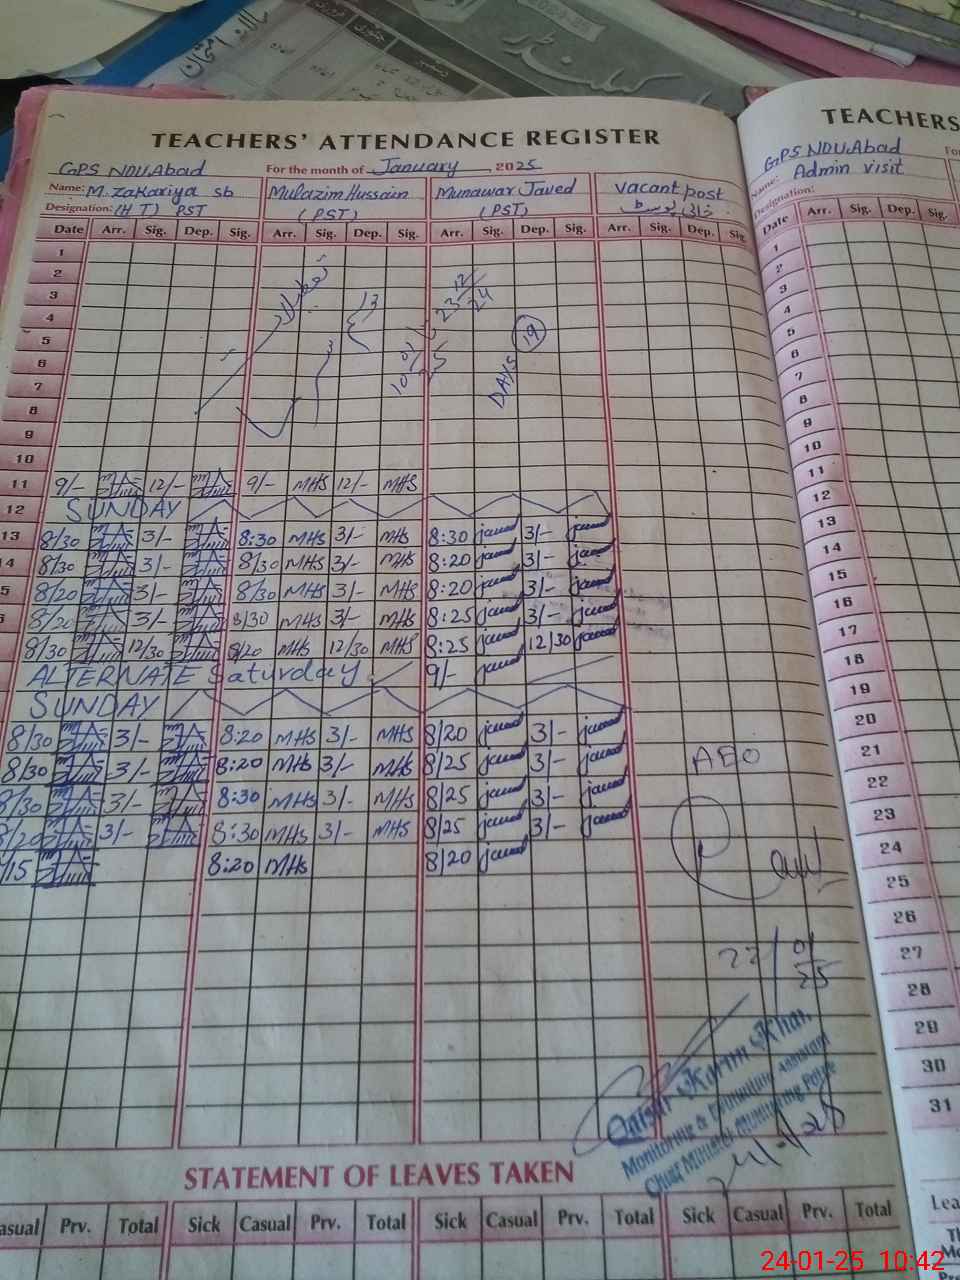 کیلنڈر
TEACHERS' ATTENDANCE REGISTER
GPS NDUAbad For the month of January, 2025
Name: M. Zakariya sb Mulazim Hussain Munawar Javed vacant post
Designation: (HT) PST (PST) (PST) خالی پوسٹ
Date Arr. Sig. Dep. Sig. Arr. Sig. Dep. Sig. Arr. Sig. Dep. Sig. Arr. Sig. Dep. Sig.
1
2
3
4
5
6
7
8
9
10
23 12/24
10 01/25
DAYS 19
11 9/- 12/- 9/- MHS 12/- MHS
12 SUNDAY
13 8/30 3/- 8:30 MHS 3/- MHS 8:30 javed 3/- javed
14 8/30 3/- 8/30 MHS 3/- MHS 8:20 javed 3/- javed
5 8/20 3/- 8/30 MHS 3/- MHS 8:20 javed 3/- javed
8/20 3/- 8/30 MHS 3/- MHS 8:25 javed 3/- javed
8/30 12/30 8/20 MHS 12/30 MHS 8:25 javed 12/30 javed
ALTERNATE Saturday 9/- javed
SUNDAY
8/30 3/- 8:20 MHS 3/- MHS 8/20 javed 3/- javed
8/30 3/- 8:20 MHS 3/- MHS 8/25 javed 3/- javed
8/30 3/- 8:30 MHS 3/- MHS 8/25 javed 3/- javed
8/20 3/- 8:30 MHS 3/- MHS 8/25 javed 3/- javed
/15 8:20 MHS 8/20 javed
AEO
22/01/25
Qaisar Karim Khan
Monitoring & Evaluation Assistant
Chief Minister Monitoring Force
STATEMENT OF LEAVES TAKEN
asual Prv. Total Sick Casual Prv. Total Sick Casual Prv. Total Sick Casual Prv. Total
TEACHERS
GPS NDUAbad Fo
Name: Admin visit
Designation:
Date Arr. Sig. Dep. Sig.
1
2
3
4
5
6
7
8
9
10
11
12
13
14
15
16
17
18
19
20
21
22
23
24
25
26
27
28
29
30
31
Lea
Th
Mo
24-01-25 10:42